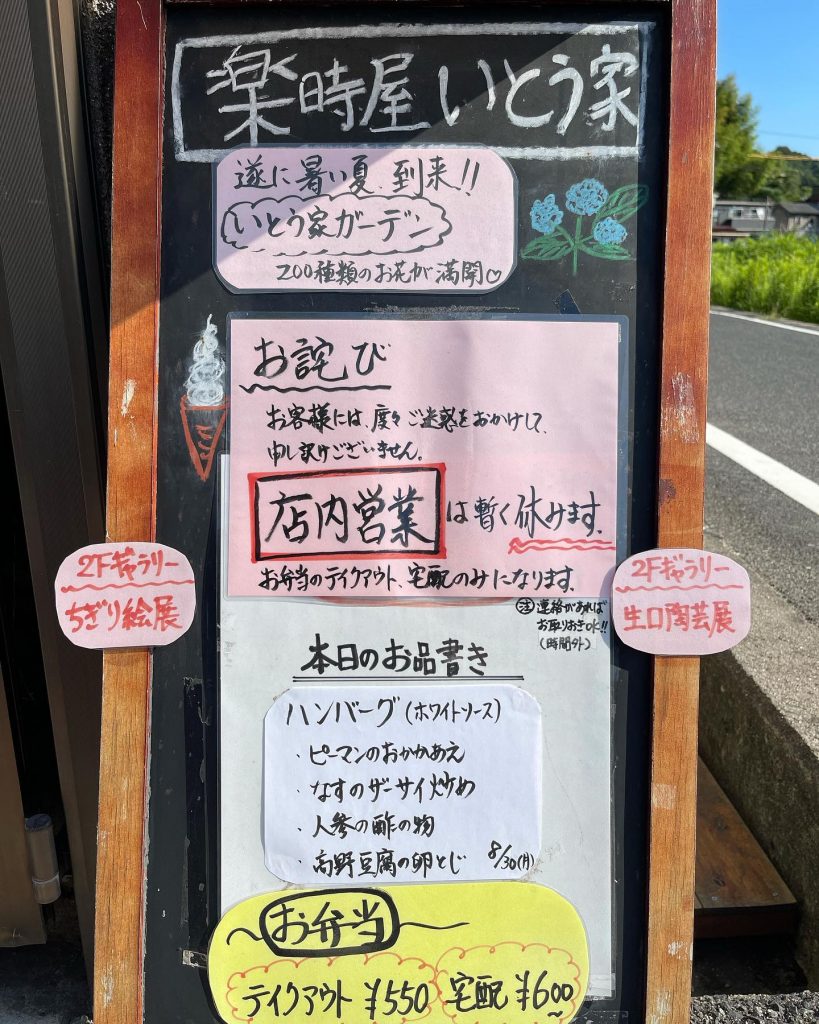 楽時屋いとう家
遂に暑い夏、到来!!
いとう家ガーデン
200種類のお花が満開♡
お詫び
お客様には、度々ご迷惑をおかけして、
申し訳けございません。
店内営業は暫く休みます。
お弁当のテイクアウト、宅配のみになります。
注 連絡があれば
お取りおきok!!
(時間外)
2Fギャラリー
ちぎり絵展
2Fギャラリー
生口陶芸展
本日のお品書き
ハンバーグ(ホワイトソース)
・ピーマンのおかかあえ
・なすのザーサイ炒め
・人参の酢の物
・高野豆腐の卵とじ 8/30(月)
お弁当
テイクアウト ¥550 宅配 ¥600